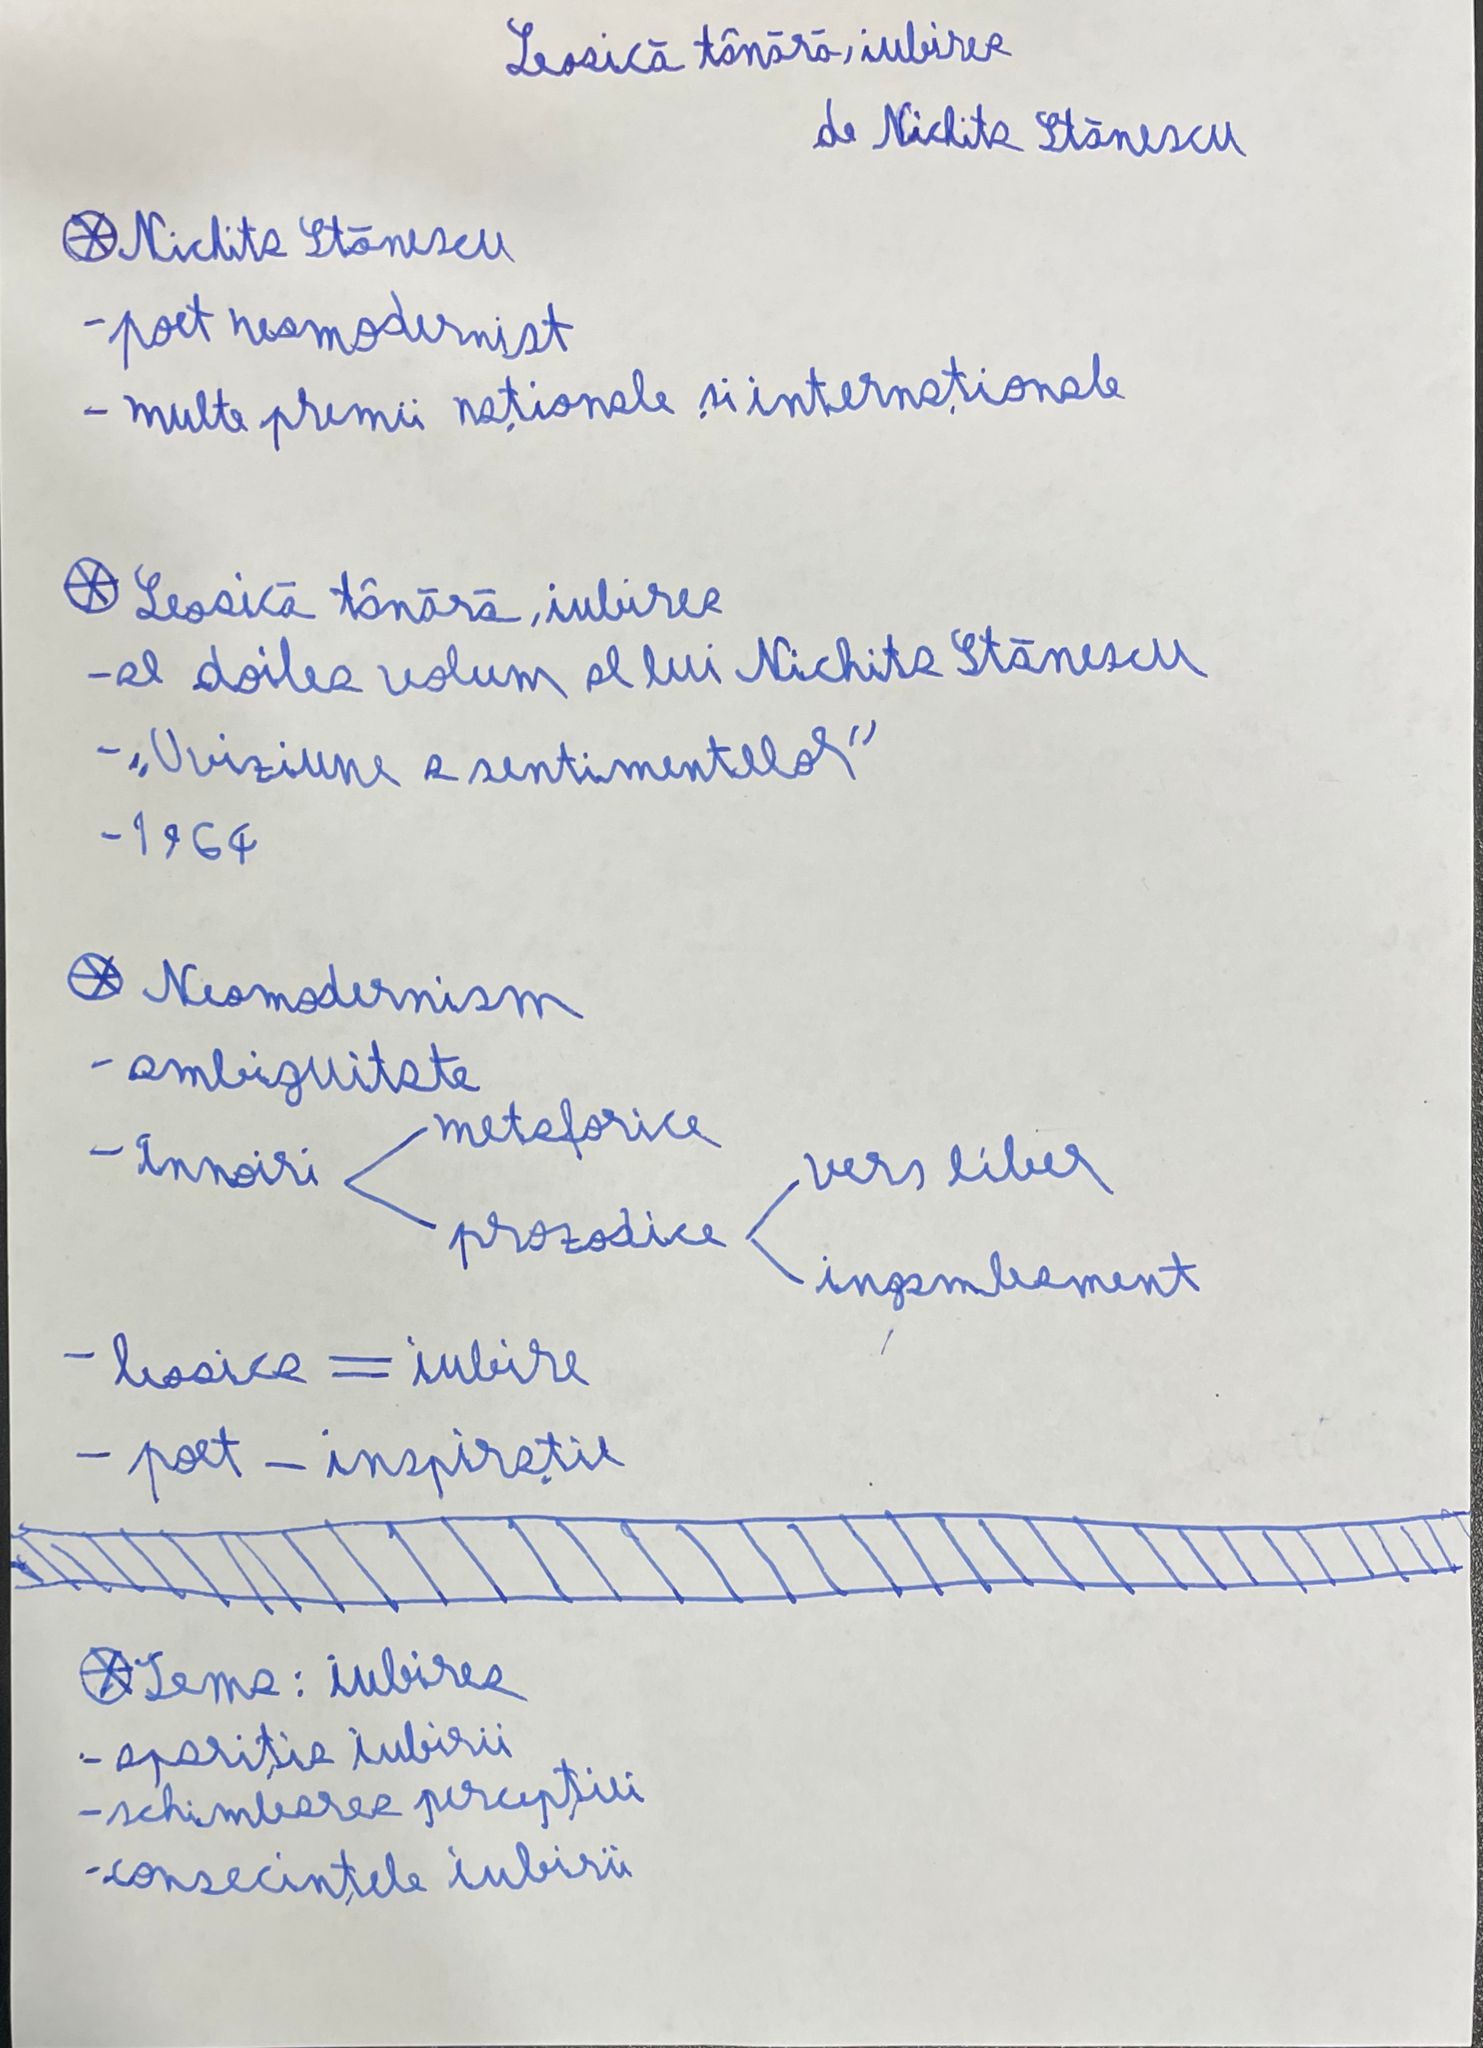 Leoaică tânără, iubirea
de Nichita Stănescu
Nichita Stănescu
- poet neomodernist
- multe premii naționale și internaționale
Leoaică tânără, iubirea
- al doilea volum al lui Nichita Stănescu
- „O viziune a sentimentelor”
- 1964
Neomodernism
- ambiguitate
- Înnoiri
metaforice
prozodice
vers liber
ingambament
- leoaica = iubire
- poet - inspirație
Tema: iubirea
- apariția iubirii
- schimbarea percepției
- consecințele iubirii